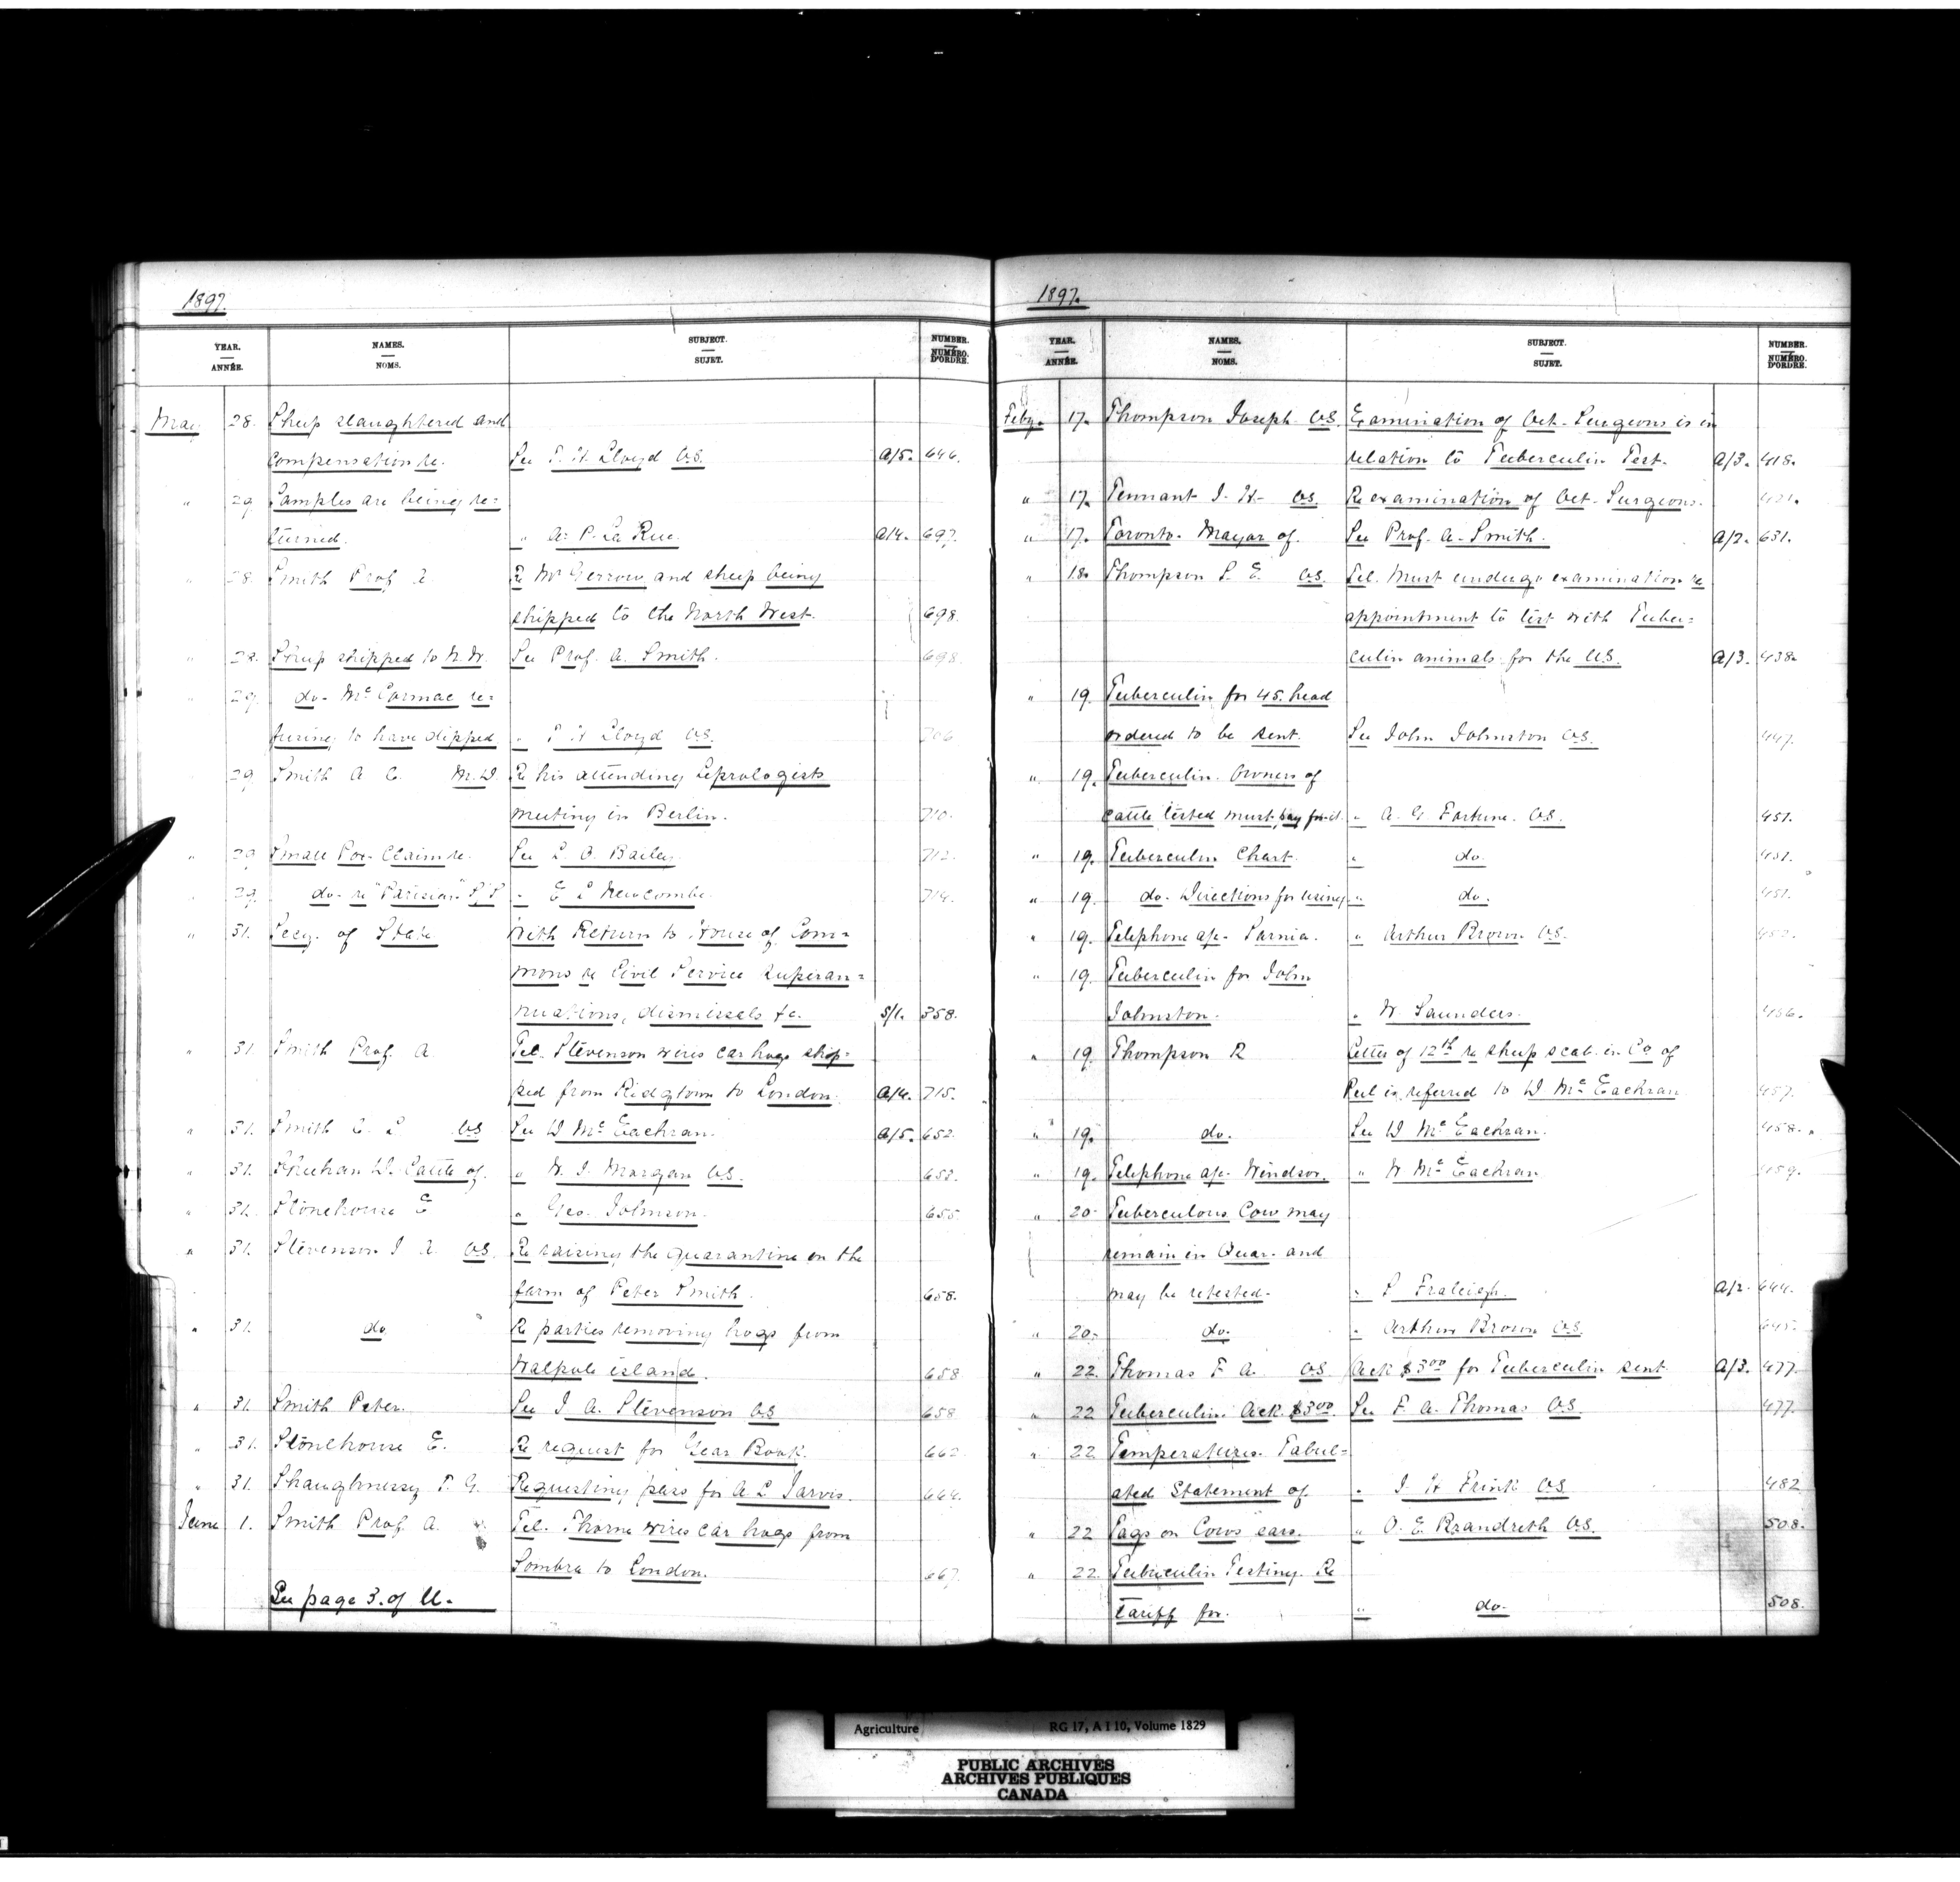 1897.
YEAR.
ANNÉE.
NAMES.
NOMS.
SUBJECT.
SUJET.
NUMBER.
NUMÉRO.
D'ORDRE.
May 28. Sheep slaughtered and
compensation re. See T. H. Lloyd V.S. A/5. 646.
" 29 Samples are being re=
turned. " A. P. La Rue. A/4. 697.
" 28. Smith Prof. A. Re Mr Gerrow and sheep being
shipped to the North West. 698.
" 28. Sheep shipped to N.W. See Prof. A. Smith. 698.
" 29. do- McCormac re=
fusing to have dipped " T H Lloyd V.S. 706
29 Smith A C. M.D. Re his attending Leprologists
meeting in Berlin. 710.
" 29 Small Pox- Claim re. See L. O. Bailey. 712.
" 29. do- re "Parisian" S/S " E L Newcombe. 714.
" 31. Secy. of State With Return to House of Com=
mons re Civil Service Superan=
nuations, dismissals &c. S/1. 358.
" 31 Smith Prof. A. Tel. Stevenson wires car hogs ship=
ped from Ridgtown to London. A/4. 715.
" 31. Smith L. V.S See D McEachran. A/5. 652.
" 31. Sheehan D. Cattle of. " W. J. Morgan V.S. 653.
" 31. Stonehouse E " Geo. Johnson. 655.
" 31. Stevenson J A. V.S. Re raising the quarantine on the
farm of Peter Smith. 658.
" 31. do Re parties removing hogs from
Walpole island. 658
" 31. Smith Peter. See J A. Stevenson V.S 658
" 31. Stonehouse E. Re request for Year Book. 662
" 31. Shaughnessy T. G. Requesting pass for A L Jarvis. 664.
June 1. Smith Prof. A. Tel. Thorne wires car hogs from
Sombra to London. 667.
See page 3. of U.
1897.
YEAR.
ANNÉE.
NAMES.
NOMS.
SUBJECT.
SUJET.
NUMBER.
NUMÉRO.
D'ORDRE.
Feby. 17. Thompson Joseph V.S. Examination of Vet. Surgeons is in
relation to Tuberculin Test. A/3. 418.
" 17. Tennant J. H- V.S. Re examination of Vet- Surgeons. 421.
" 17. Toronto- Mayor of. See Prof. A. Smith. A/2. 631.
" 18. Thompson S. E. V.S. Tel. Must undergo examination re
appointment to test with Tuber=
culin animals for the U.S. A/3. 438.
" 19. Tuberculin for 45. head
ordered to be sent. See John Johnston V.S. 447.
" 19. Tuberculin. Owners of
cattle tested must pay for it. " A. G. Fortune. V.S. 451.
" 19. Tuberculin Chart. " do. 451.
" 19. do. Directions for using " do. 451.
" 19. Telephone a/c- Sarnia. " Arthur Brown V.S. 452.
" 19. Tuberculin for John
Johnston. " W. Saunders. 456.
" 19. Thompson R Letter of 12th re sheep scab in Co. of
Peel is referred to D McEachran 457.
" 19. do. See D McEachran. 458.
" 19. Telephone a/c- Windsor. " W McEachran. 459.
" 20- Tuberculous Cow may
remain in Quar. and
may be retested- " S Fraleigh. A/2. 644.
" 20- do. " Arthur Brown V.S. 645.
" 22. Thomas F. A. V.S. Ack $3.00 for Tuberculin sent A/3. 477.
" 22 Tuberculin. Ack. $3.00. See F. A. Thomas V.S. 477.
" 22 Temperatures- Tabul=
ated Statement of. " J. H Frink V.S 482
" 22 Tags on Cows ears. " O. E. Brandreth V.S. 508.
" 22. Tuberculin Testing. Re
tariff for. " do. 508.
Agriculture RG 17, A I 10, Volume 1829
PUBLIC ARCHIVES
ARCHIVES PUBLIQUES
CANADA